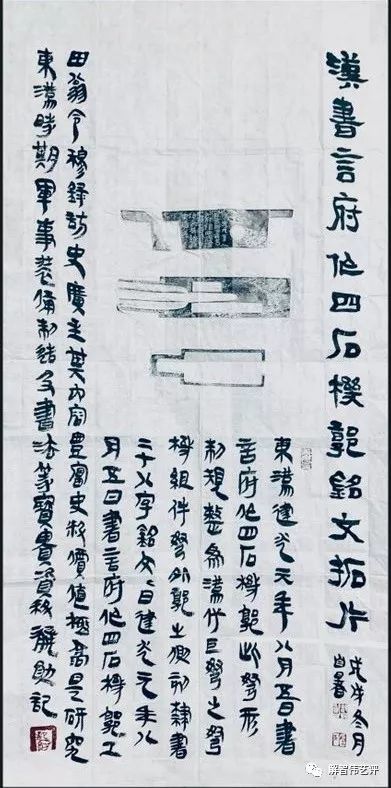 漢書言府作四石機郭銘文拓片
戊戌冬月
東漢建光元年八月五日書
言府作四石機郭此弩形
制規整為漢代巨弩之弩
機組件弩外郭上側刻隸書
二十八字銘文曰建光元年八
月五日書言府作四石機郭工
田翁令穆鋒史廣主其內容豐富史料價值極高是研究
東漢時期軍事裝備制造及書法篆寶貴資料記
解智伟艺评